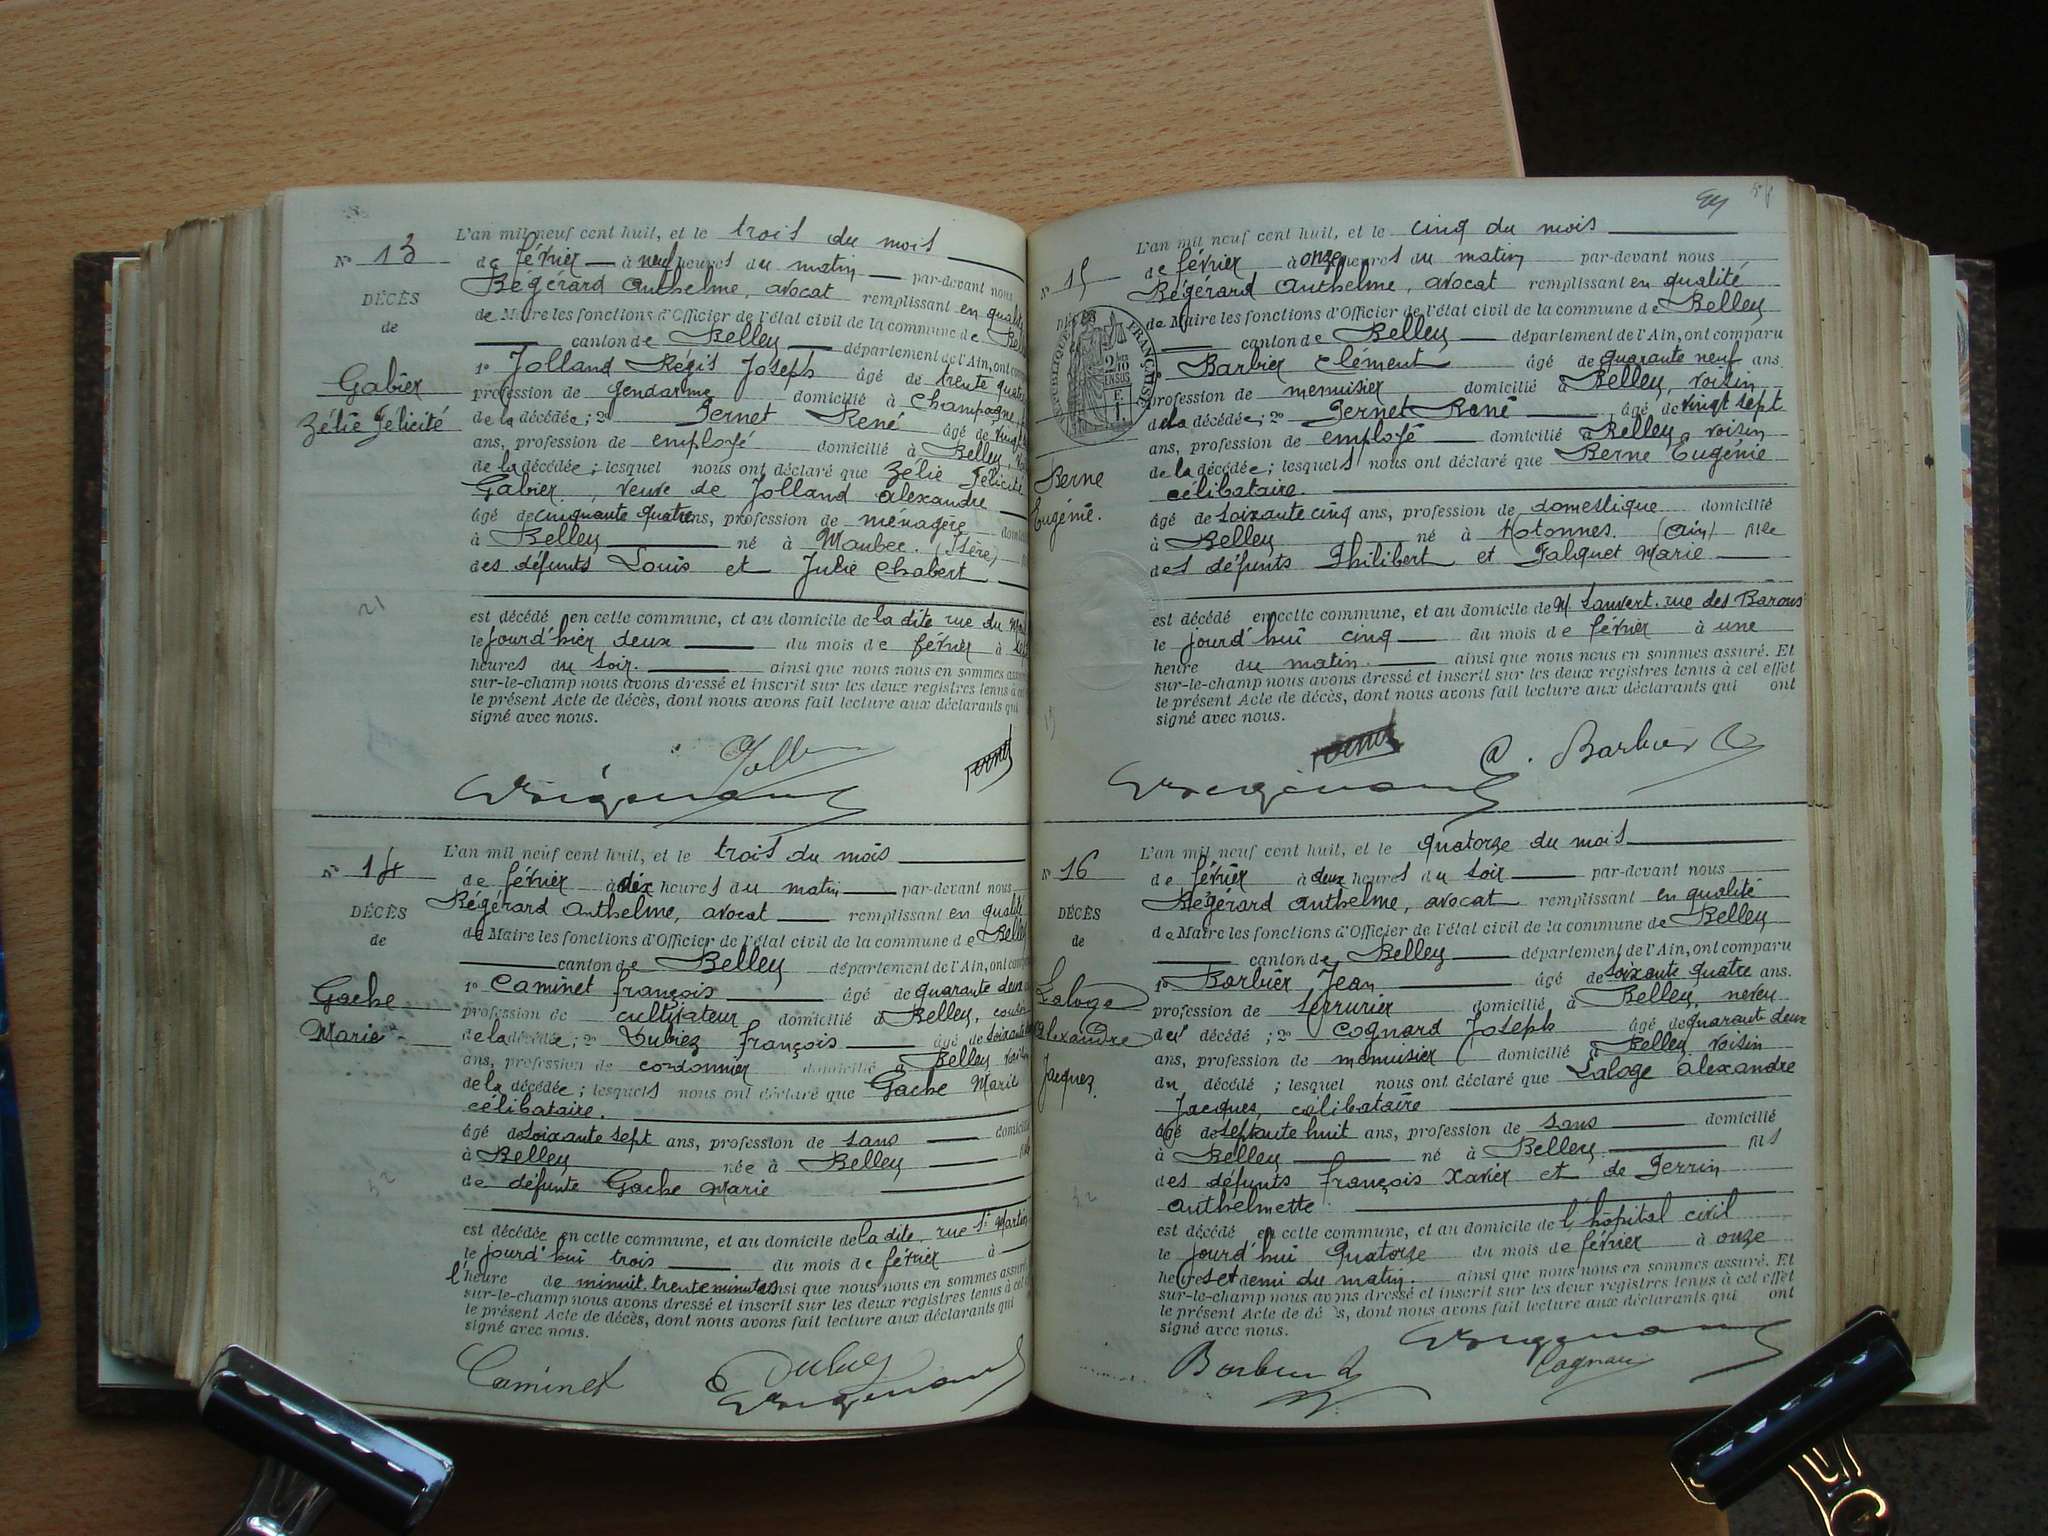 L'an mil neuf cent huit, et le trois du mois
N° 13
de février à neuf heures du matin par-devant nous
Bégérard Anthelme, avocat remplissant en qualité
DÉCÈS
de Maire les fonctions d'Officier de l'état civil de la commune de
de
canton de Belley département de l'Ain, ont
Gabier
1° Jolland Régis Joseph âgé de trente
profession de gendarme domicilié à Champagne
Zélie Félicité
de la décédée; 2° Pernet René âgé de
ans, profession de employé domicilié à Belley
de la décédée; lesquel nous ont déclaré que Zélie Félicité
Gabier, veuve de Jolland Alexandre
âgé de cinquante quatre ans, profession de ménagère
à Belley né à Maubec. (Isère)
des défunts Louis et Julie Chabert
21
est décédé en cette commune, et au domicile de la dite rue du
le jourd'hier deux du mois de février à
heures du soir. ainsi que nous nous en sommes
sur-le-champ nous avons dressé et inscrit sur les deux registres tenus à
le présent Acte de décès, dont nous avons fait lecture aux déclarants qui
signé avec nous.
Pernet
L'an mil neuf cent huit, et le trois du mois
N° 14
de février à dix heures du matin par-devant nous
Bégérard Anthelme, avocat remplissant en qualité
DÉCÈS
de Maire les fonctions d'Officier de l'état civil de la commune de Belley
de
canton de Belley département de l'Ain, ont
Gache
1° Caminet françois âgé de quarante deux
profession de cultivateur domicilié à Belley,
Marie
de la décédée; 2° Dubiez françois âgé de
ans, profession de cordonnier domicilié à Belley
de la décédée; lesquels nous ont déclaré que Gache Marie
célibataire.
âgé de soixante sept ans, profession de sans domicilié
à Belley née à Belley
de défunte Gache Marie
52
est décédée en cette commune, et au domicile de la dite, rue St Martin
le jourd'hui trois du mois de février à
l'heure de minuit trente minutes ainsi que nous nous en sommes assuré
sur-le-champ nous avons dressé et inscrit sur les deux registres tenus à cet
le présent Acte de décès, dont nous avons fait lecture aux déclarants qui
signé avec nous.
Caminet
L'an mil neuf cent huit, et le cinq du mois
N° 15
de février à onze heures du matin par-devant nous
Bégérard Anthelme, avocat remplissant en qualité
DÉCÈS
de Maire les fonctions d'Officier de l'état civil de la commune de Belley
canton de Belley département de l'Ain, ont comparu
Barbier Clément âgé de quarante neuf ans
profession de menuisier domicilié à Belley, voisin
de la décédée; 2° Pernet René âgé de vingt sept
ans, profession de employé domicilié à Belley voisin
de la décédée; lesquels nous ont déclaré que Berne Eugénie
Berne
célibataire.
Eugénie.
âgé de soixante cinq ans, profession de domestique domicilié
à Belley né à Hotonnes. (Ain) fille
des défunts Philibert et Falquet Marie
est décédé en cette commune, et au domicile de M. Sauvert. rue des Barons
le jourd'hui cinq du mois de février à une
heure du matin. ainsi que nous nous en sommes assuré. Et
sur-le-champ nous avons dressé et inscrit sur les deux registres tenus à cet effet
le présent Acte de décès, dont nous avons fait lecture aux déclarants qui ont
signé avec nous.
Pernet
Barbier
L'an mil neuf cent huit, et le quatorze du mois
N° 16
de février à deux heures du soir par-devant nous
Bégérard Anthelme, avocat remplissant en qualité
DÉCÈS
de Maire les fonctions d'Officier de l'état civil de la commune de Belley
de
canton de Belley département de l'Ain, ont comparu
Laloge
1° Barbier Jean âgé de soixante quatre ans.
profession de serrurier domicilié à Belley, neveu
Alexandre
du décédé; 2° Cognard Joseph âgé de quarante deux
ans, profession de menuisier domicilié à Belley voisin
Jacques.
du décédé; lesquel nous ont déclaré que Laloge Alexandre
Jacques, célibataire
âgé de septante huit ans, profession de sans domicilié
à Belley né à Belley. fils
des défunts françois Xavier et de Perrin
Anthelmette
52
est décédé en cette commune, et au domicile de l'hôpital civil
le jourd'hui Quatorze du mois de février à onze
heures et demi du matin. ainsi que nous nous en sommes assuré. Et
sur-le-champ nous avons dressé et inscrit sur les deux registres tenus à cet effet
le présent Acte de dé s, dont nous avons fait lecture aux déclarants qui ont
signé avec nous.